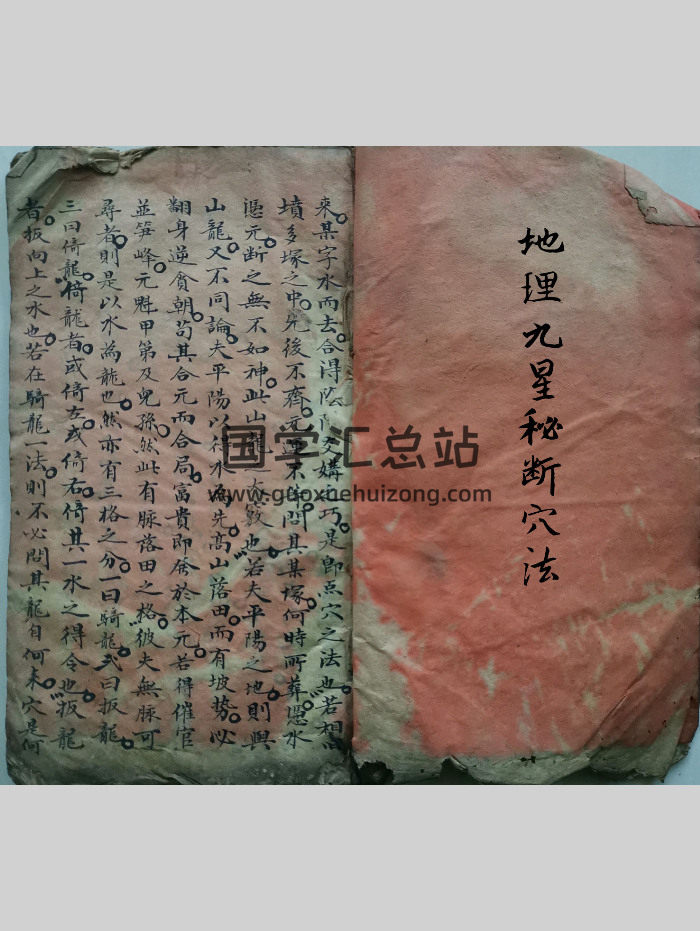 地理九星秘断穴法
來某字水而去合得陰陽交媾之巧是即点穴之法也若相
墳多塚之中先後不齊元運不同問其某塚何時所葬憑水
憑元断之無不如神此山龍大数也若夫平陽之地則與
山龍又不同論夫平陽以得水為先高山落田而有坡势必
翻身逆貪朝苟其合元而合局富貴即發於本元若得催官
並笋峰元魁甲第及兒孫然此有脉落田之格彼夫無脉可
尋者則是以水為龍也然亦有三格之分一曰騎龍弍曰扳龍
三曰倚龍倚龍者或倚左或倚右倚其一水之得令也扳龍
者扳向上之水也若在騎龍一法則不必問其龍自何来穴是何
国学汇总站
www.guoxuehuizong.com